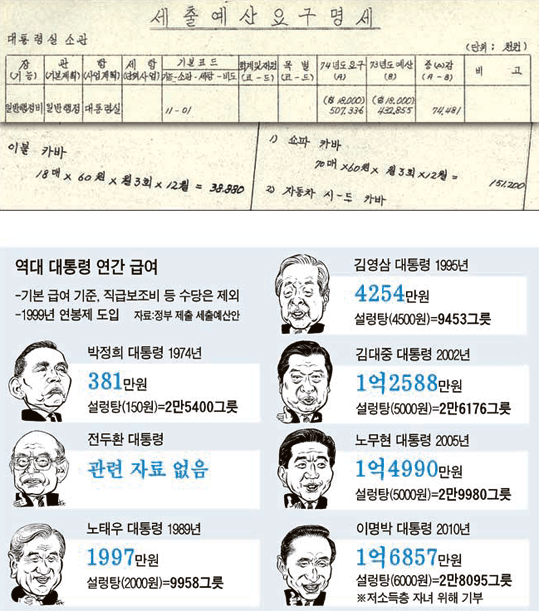 세출예산요구명세
대통령실 소관
(단위 : 천원)
장 관 세항 세항 기본코드 회계및재원 목별 74년도 요구 73년도 예산 증(△)감 비고
(기능) (기본계획) (사업계획) (단위사업) (코-드) (코-드) (A) (B) (A-B)
일반행정비 일반행정 대통령실 11-01 (총 18,000) (총 18,000)
507,336 432,855 74,481
이불 카바
18매 × 60원 × 월3회 × 12월 = 38,880
1) 쇼파 카바
70매 × 60원 × 월3회 × 12월 =
151,200
2) 자동차 시-트 카바
역대 대통령 연간 급여
-기본 급여 기준, 직급보조비 등 수당은 제외
-1999년 연봉제 도입 자료:정부 제출 세출예산안
박정희 대통령 1974년
381만원
설렁탕(150원)=2만5400그릇
전두환 대통령
관련 자료 없음
노태우 대통령 1989년
1997만원
설렁탕(2000원)=9958그릇
김영삼 대통령 1995년
4254만원
설렁탕(4500원)=9453그릇
김대중 대통령 2002년
1억2588만원
설렁탕(5000원)=2만6176그릇
노무현 대통령 2005년
1억4990만원
설렁탕(5000원)=2만9980그릇
이명박 대통령 2010년
1억6857만원
설렁탕(6000원)=2만8095그릇
※저소득층 자녀 위해 기부